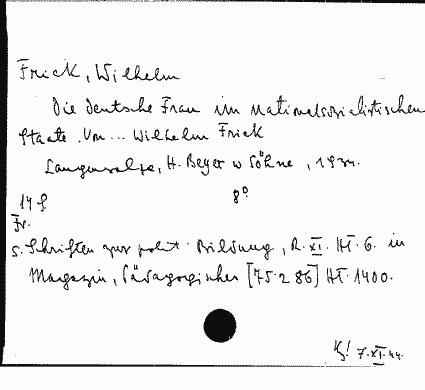 Frick, Wilhelm
Die deutsche Frau im nationalsozialistischen
Staate. Von ... Wilhelm Frick
Langensalza, H. Beyer u Söhne, 1934.
14 S. 8°
Fr.
S. Schriften zur polit. Bildung, R. XI. Ht. 6. in
Magazin, Pädagogisches [75.286] Ht. 1400.
7.XI.44.